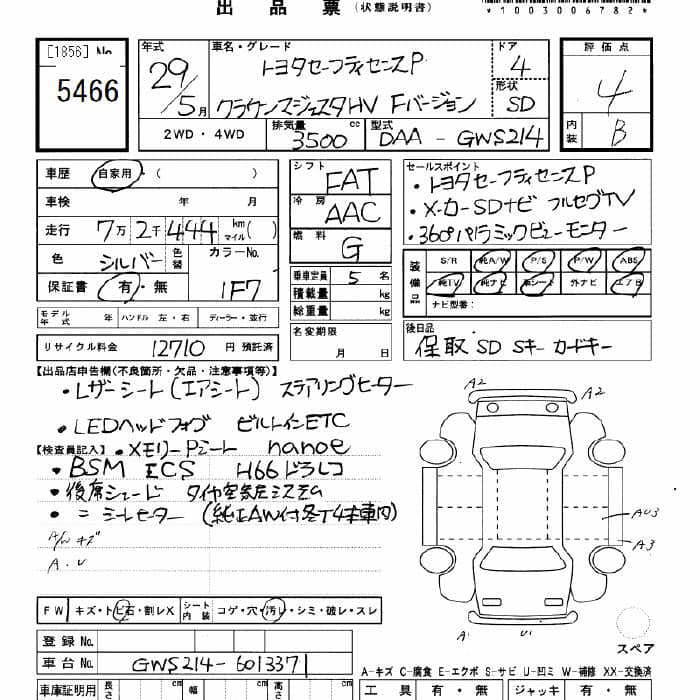 出品票（状態説明書）
*1003006782*
[1856] No
5466
年式 29/5月
車名・グレード トヨタセーフティセンスP
クラウンマジェスタHV Fバージョン
ドア 4
形状 SD
評価点 4
内装 B
2WD・4WD
排気量 3500 cc
型式 DAA-GWS214
車歴 自家用・（ ）
車検 年 月
走行 7万2千444 km マイル( )
色 シルバー 色替
カラーNo. 1F7
保証書 有・無
シフト FAT
冷房 AAC
燃料 G
乗車定員 5 名
積載量 kg
総重量 kg
セールスポイント
・トヨタセーフティセンスP
・メーカーSDナビ フルセグTV
・360°パノラミックビューモニター
装備品 S/R 純A/W P/S P/W ABS
純TV 純ナビ 革シート 外ナビ エアB
ナビ型番：
モデル年式 年 ハンドル 左・右 ディーラー・並行
名変期限 月 日
リサイクル料金 12710 円 預託済
後日品
保取 SD Sキー カードキー
【出品店申告欄(不良箇所・欠品・注意事項等)】
・レザーシート(エアシート) ステアリングヒーター
・LEDヘッドフォグ ビルトインETC
【検査員記入】・メモリーPシート nanoe
・BSM ECS H66ドラレコ
・後席シェード タイヤ空気圧システム
・シートヒーター (純正AW付冬T4本車内)
A/W キズ
A.U
A2 A2
AU3
A3
A U1
スペア
FW キズ・トビ石・割レX シート内装 コゲ・穴・汚レ・シミ・破レ・スレ
登録No.
車台No. GWS214-6013371
A-キズ C-腐食 E-エクボ S-サビ U-凹ミ W-補修 XX-交換済
車庫証明用 長さ cm 幅 cm 高さ cm
工具 有・無 ジャッキ 有・無